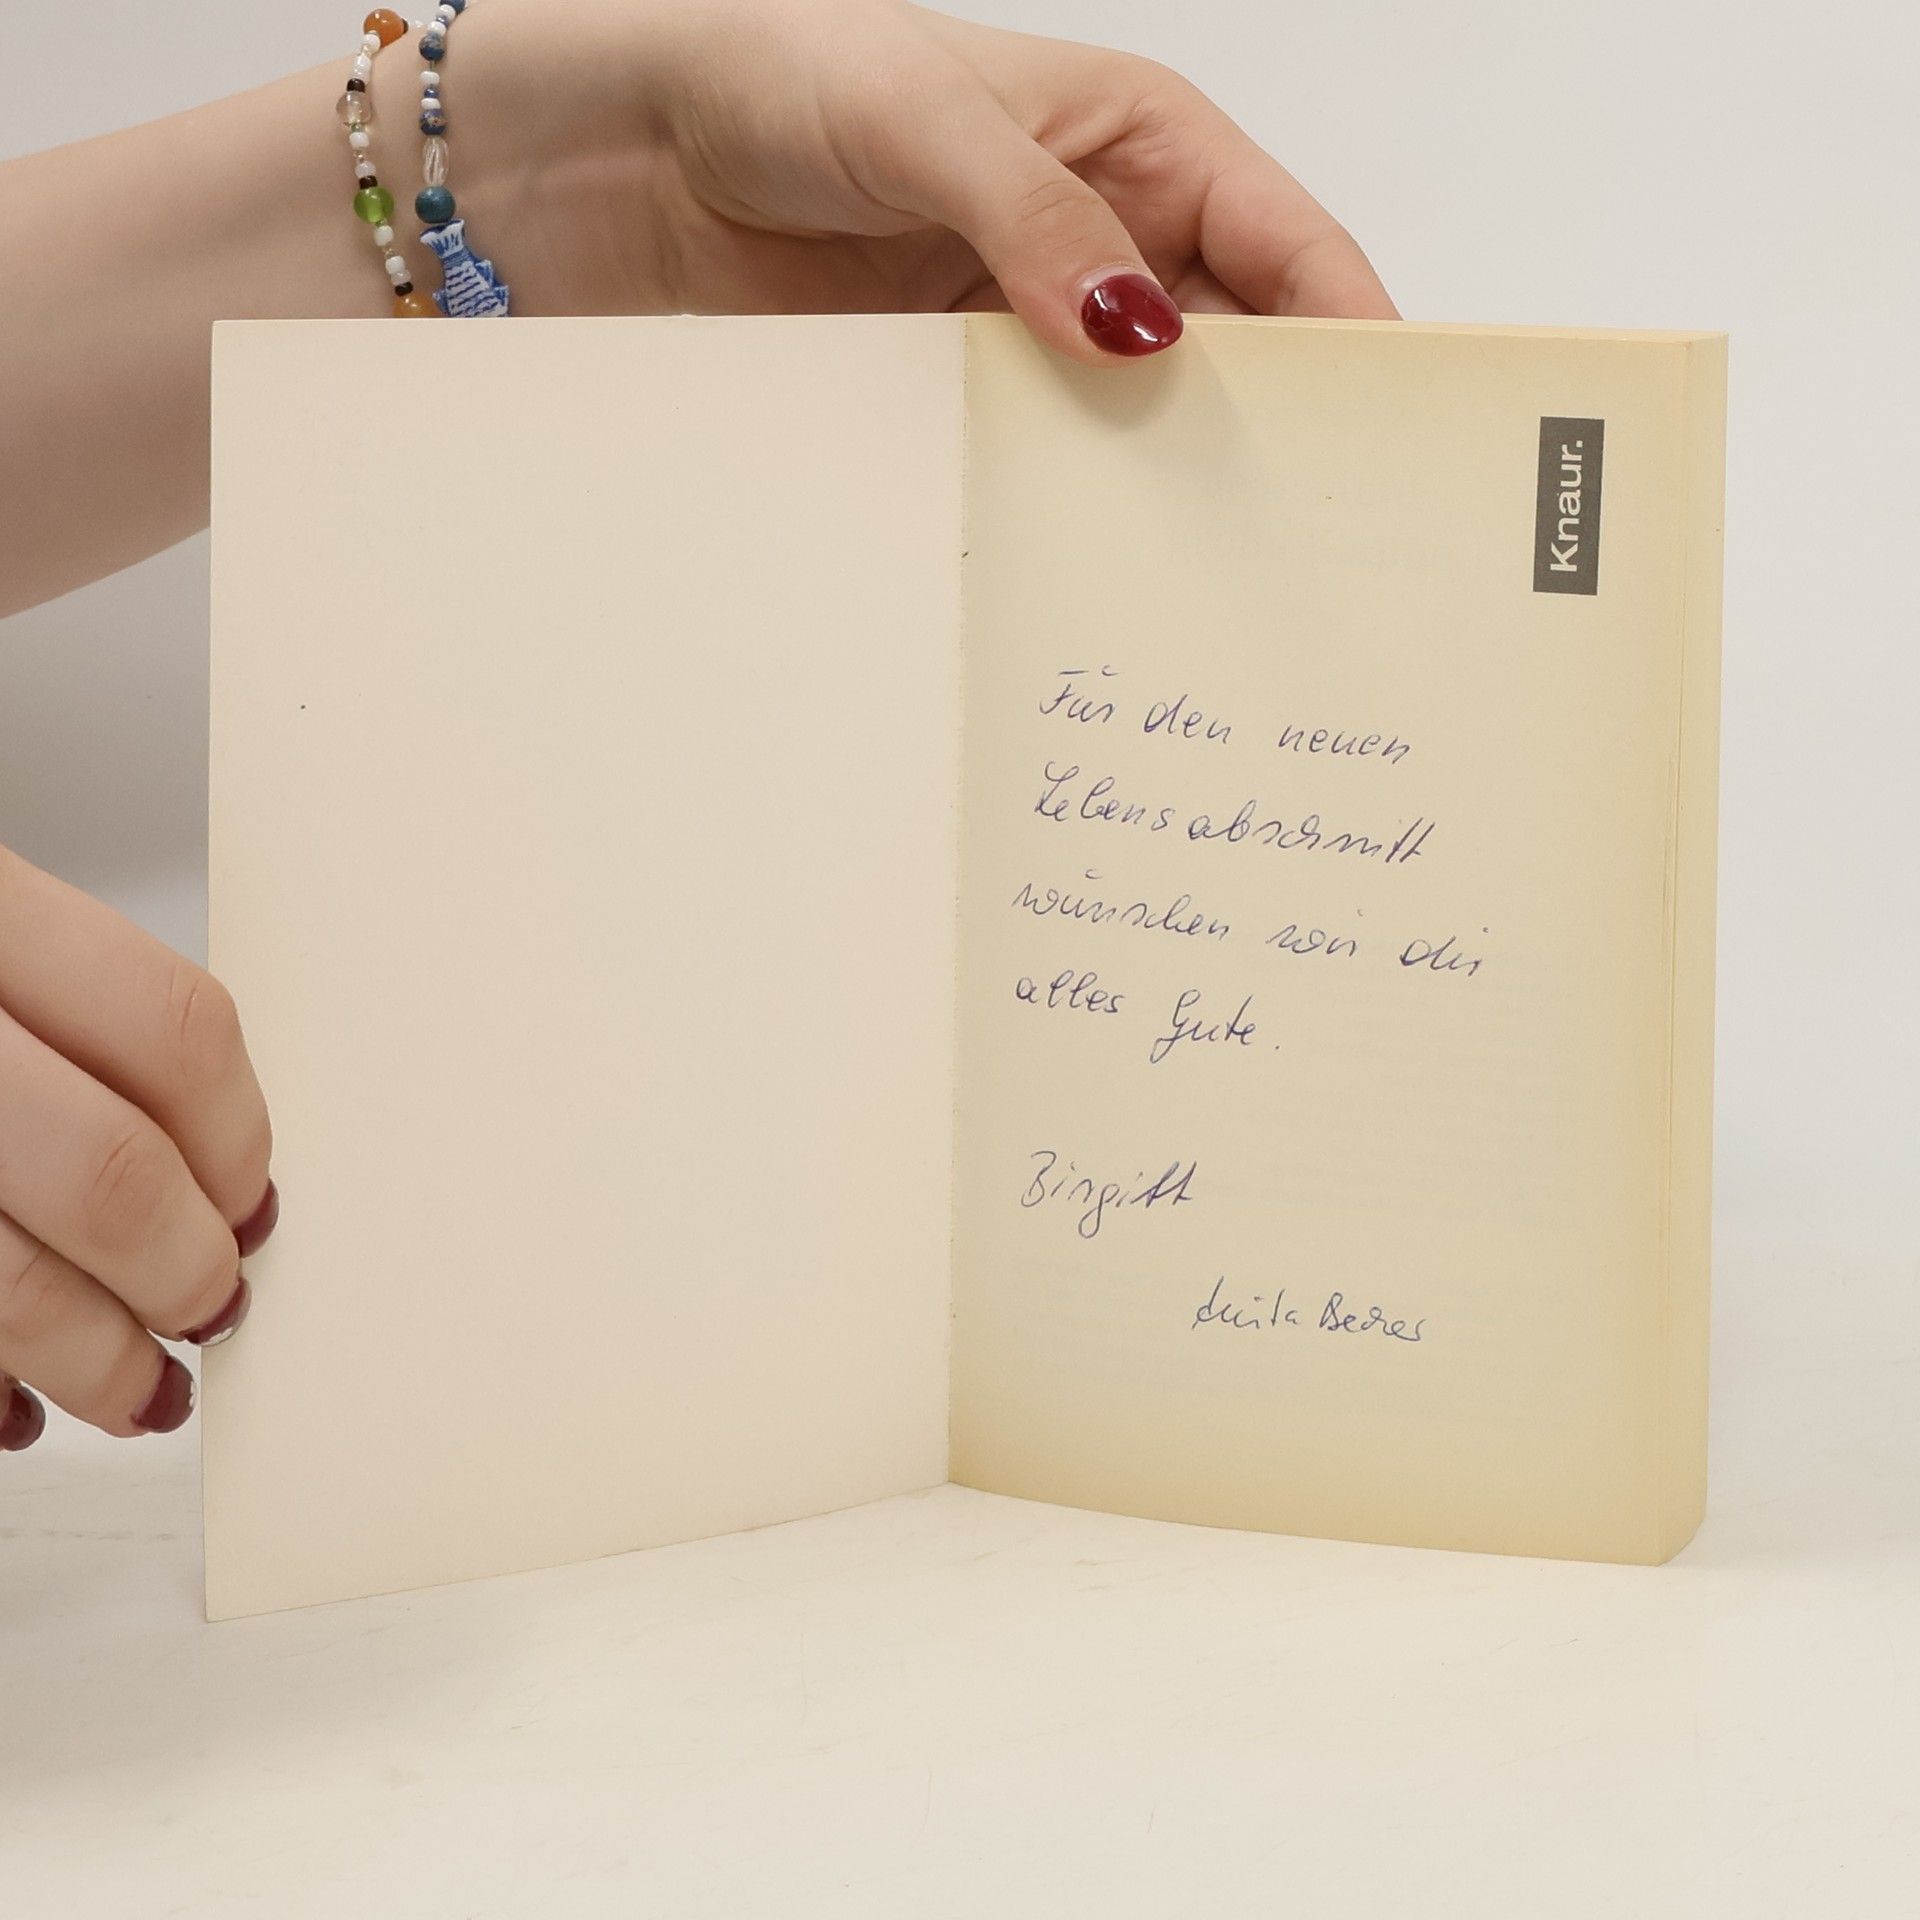 Knaur.
Für den neuen
Lebensabschnitt
wünschen wir dir
alles Gute.
Birgitt
Anita Becker